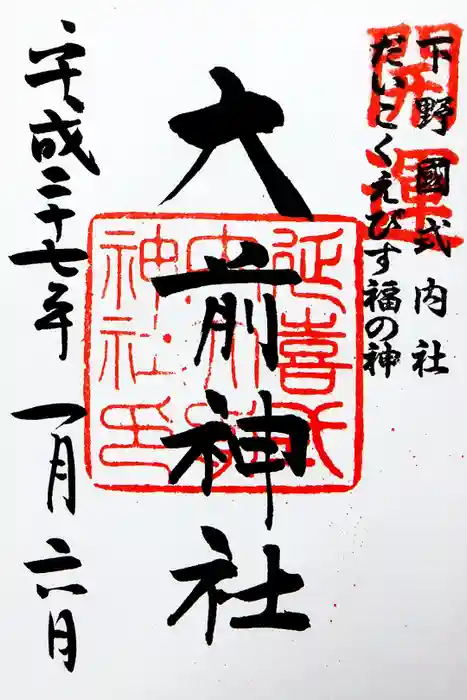 開運
下野國式内社
だいこくえびす福の神
大前神社
延喜式
内大前
神社印
平成二十七年 一月 六日